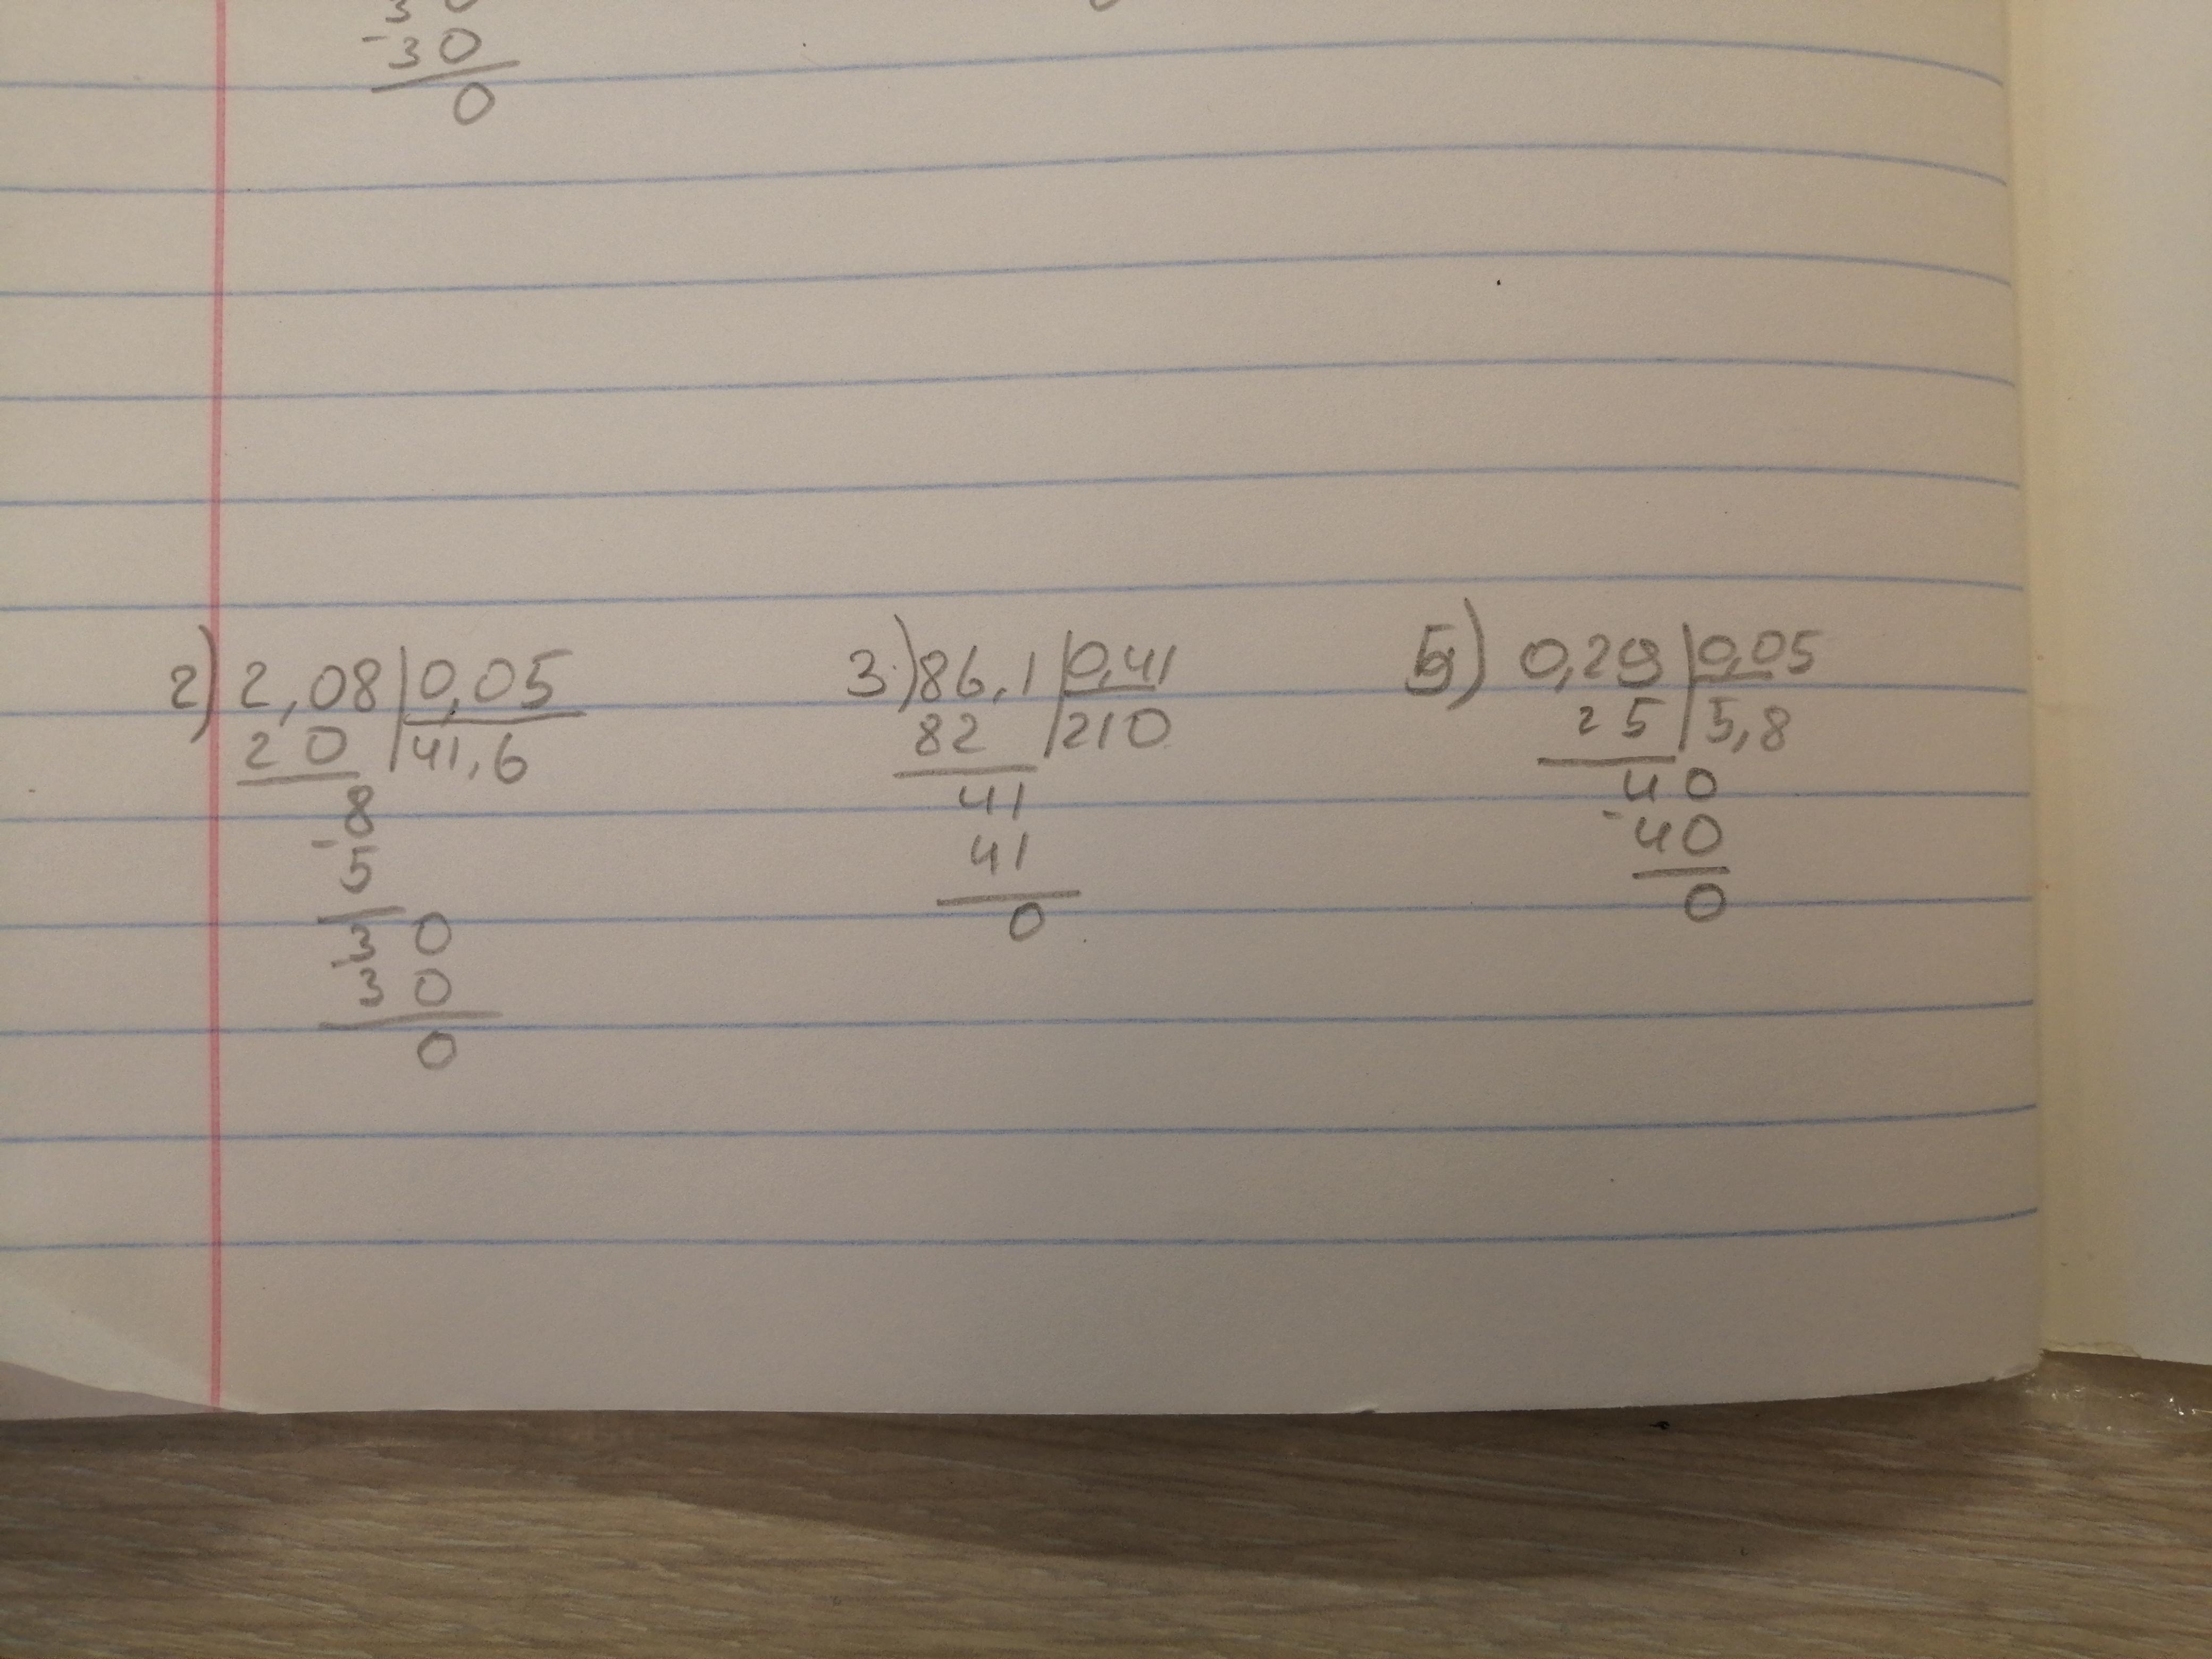 -30
0
2) 2,08 | 0,05
20 | 41,6
8
-5
30
-30
0
3) 86,1 | 0,41
82 | 210
41
41
0
5) 0,29 | 0,05
25 | 5,8
40
-40
0